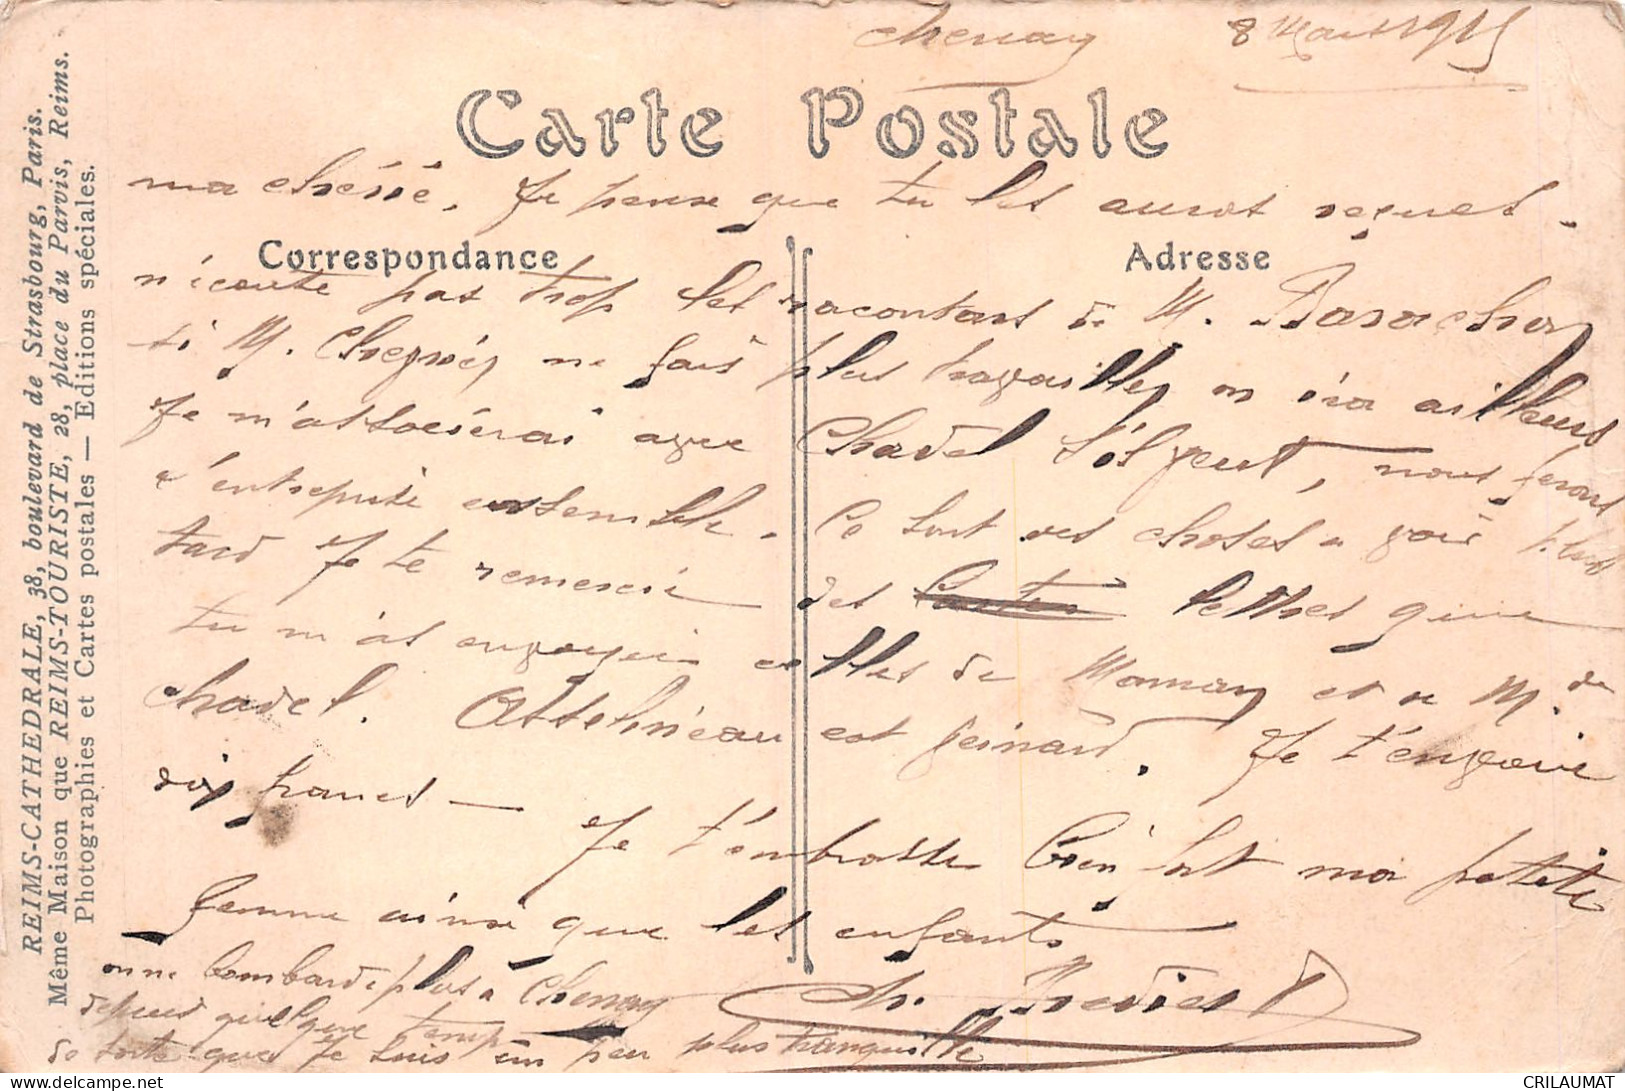 Chenay 8 Mars 1915
Carte Postale
ma chérie. Je pense que tu les auras reçues.
Correspondance
Adresse
n'écoute pas trop les racontars de M. Barachon
si M. ne fais plus travailler on ira ailleurs
Je m'associerai avec Chadel s'il veut, nous ferons
l'entreprise ensemble. Ce sont des choses a voir plus
tard Je te remercie des lettres que
tu m'as envoyer celles de Maman et de M. de
Chadel. est peinard. Je t'envoie
dix francs — Je t'embrasse bien fort ma petite
femme ainsi que les enfants
on ne bombarde plus a Chenay
depuis quelque temps
de sorte que Je suis un peu plus tranquille
Ch.
REIMS-CATHEDRALE, 38, boulevard de Strasbourg, Paris.
Même Maison que REIMS-TOURISTE, 28, place du Parvis, Reims.
Photographies et Cartes postales — Editions spéciales.
CRILAUMAT